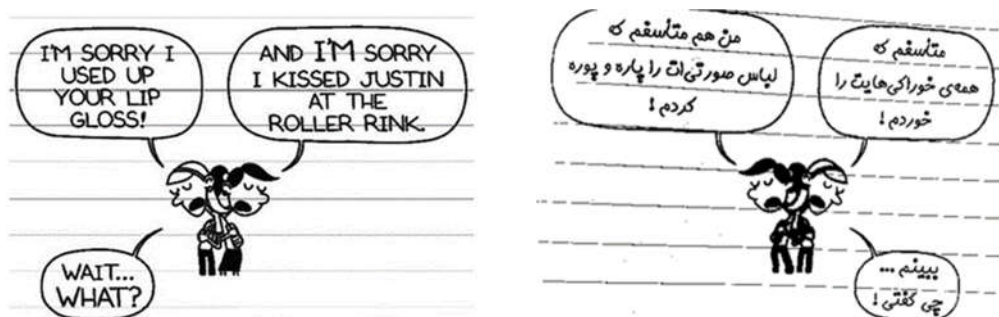 I'M SORRY I
USED UP
YOUR LIP
GLOSS!
AND I'M SORRY
I KISSED JUSTIN
AT THE
ROLLER RINK.
WAIT...
WHAT?
متأسفم که
همه‌ی خوراکی‌هایت را
خوردم!
من هم متأسفم که
لباس صورتی‌ات را پاره و پوره
کردم!
ببینم ...
چی گفتی!